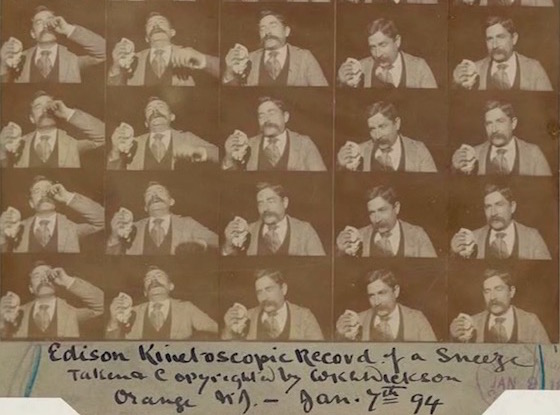 Edison Kinetoscopic Record of a Sneeze
Taken & Copyrighted by W.K.L. Dickson
Orange N.J. — Jan. 7th 94
JAN